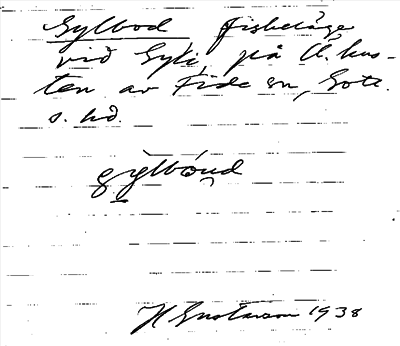 Gylbod fiskeläge
vid Gyle, på Ö. kus-
ten av Fide sn, Gotl.
s. hd.
gylbóud
H Gustavson 1938